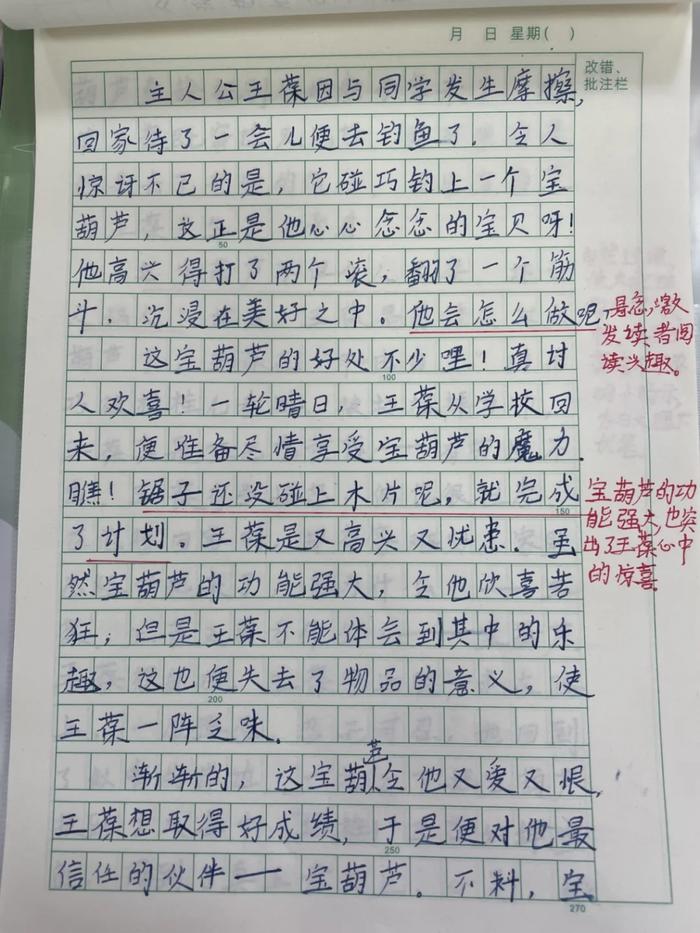 月 日 星期( )
改错、
批注栏
主人公王葆因与同学发生摩擦,
回家待了一会儿便去钓鱼了. 令人
惊讶不已的是, 它碰巧钓上一个宝
葫芦, 这正是他心心念念的宝贝呀!
50
他高兴得打了两个滚, 翻了一个筋
斗. 沉浸在美好之中. 他会怎么做呢,
悬念,激
发读者阅
读兴趣。
这宝葫芦的好处不少哩! 真讨
100
人欢喜! 一轮晴日, 王葆从学校回
来, 便准备尽情享受宝葫芦的魔力.
瞧! 锯子还没碰上木片呢, 就完成
150
了计划。王葆是又高兴又忧患. 虽
宝葫芦的功
能强大,也突
出了王葆心中
的惊喜
然宝葫芦的功能强大, 令他欣喜若
狂, 但是王葆不能体会到其中的乐
趣, 这也便失去了物品的意义, 使
200
王葆一阵乏味.
渐渐的, 这宝葫芦令他又爱又恨,
王葆想取得好成绩, 于是便对他最
250
信任的伙伴——宝葫芦。不料, 宝
270